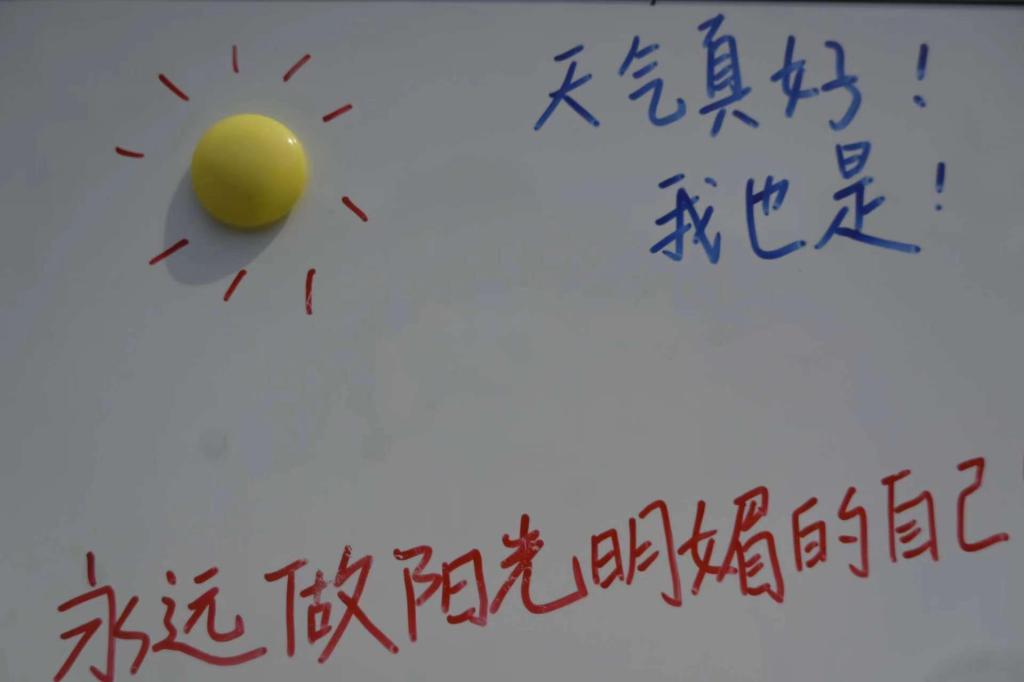 天气真好！
我也是！
永远做阳光明媚的自己